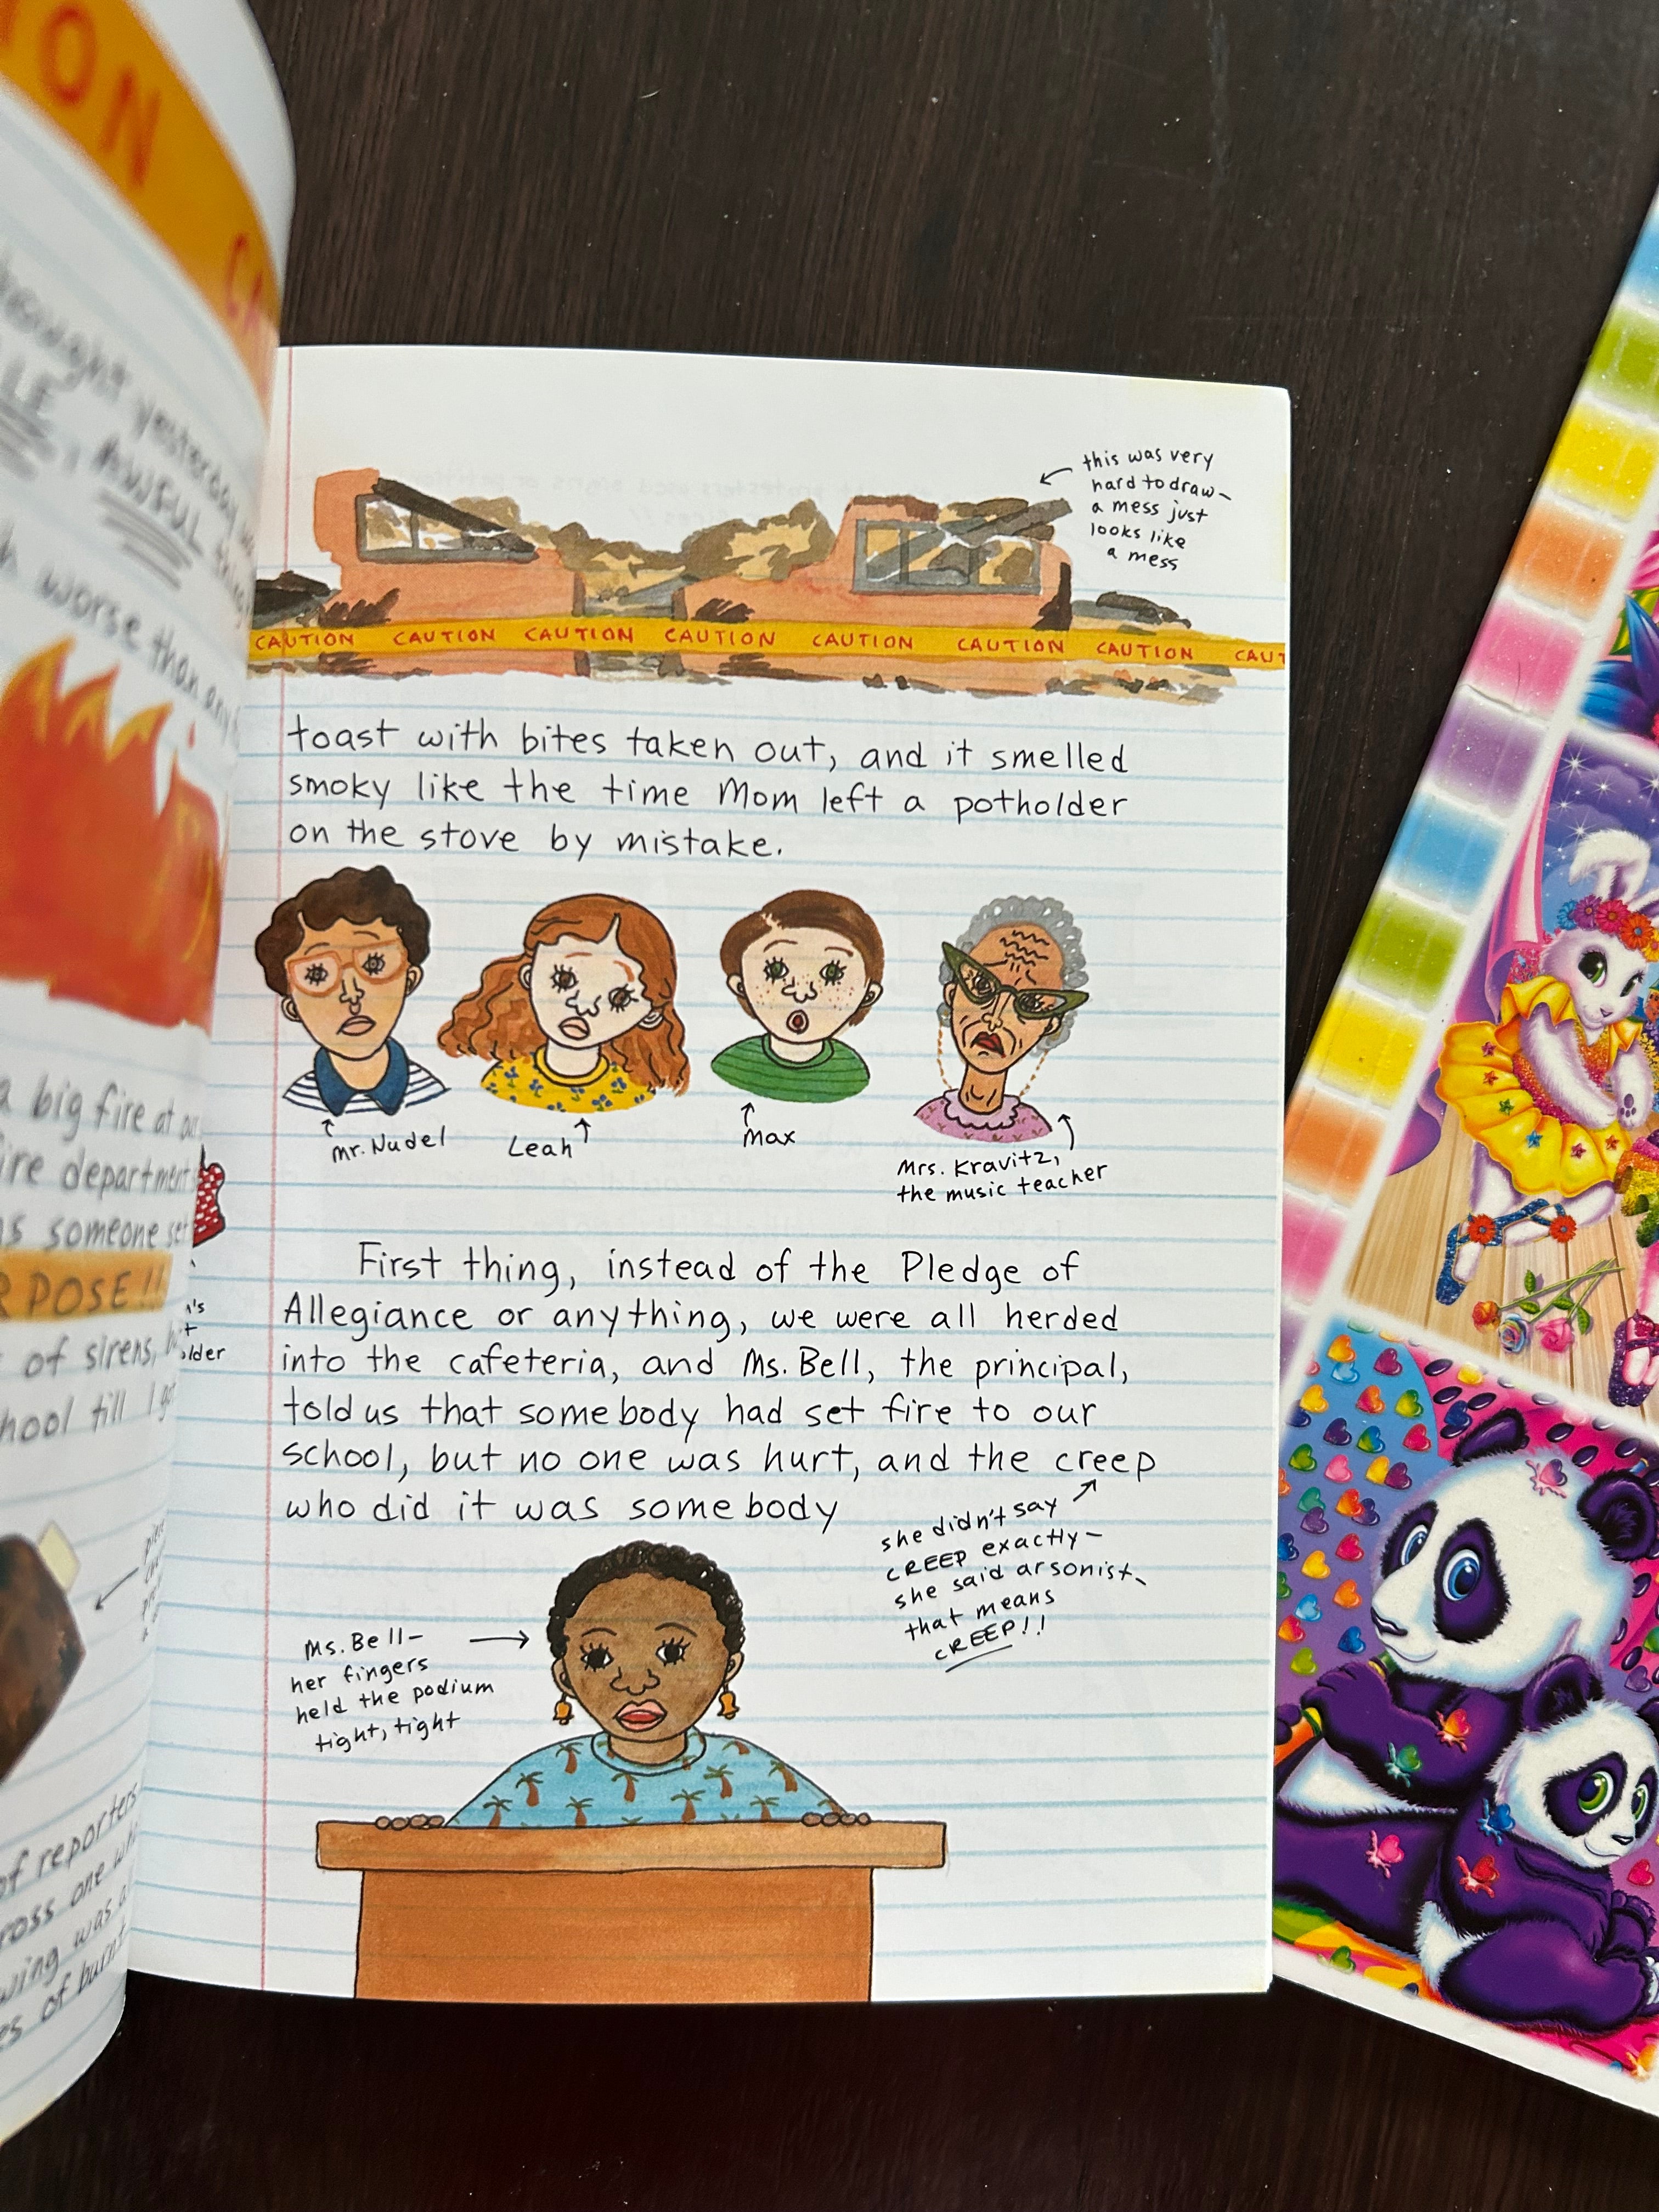 ION
CA
thought yesterday
LE, AWFUL
worse than any
a big fire at our
fire department
as someone set
RPOSE!!
of sirens,
hool till I got
of reporters
ross one
wing was a
es of burnt
older
this was very
hard to draw—
a mess just
looks like
a mess
CAUTION CAUTION CAUTION CAUTION CAUTION CAUTION CAUTION CAUT
toast with bites taken out, and it smelled
smoky like the time Mom left a potholder
on the stove by mistake.
Mr. Nudel
Leah
Max
Mrs. Kravitz,
the music teacher
First thing, instead of the Pledge of
Allegiance or anything, we were all herded
into the cafeteria, and Ms. Bell, the principal,
told us that somebody had set fire to our
school, but no one was hurt, and the creep
who did it was somebody
she didn't say
CREEP exactly—
she said arsonist—
that means
CREEP!!
Ms. Bell—
her fingers
held the podium
tight, tight